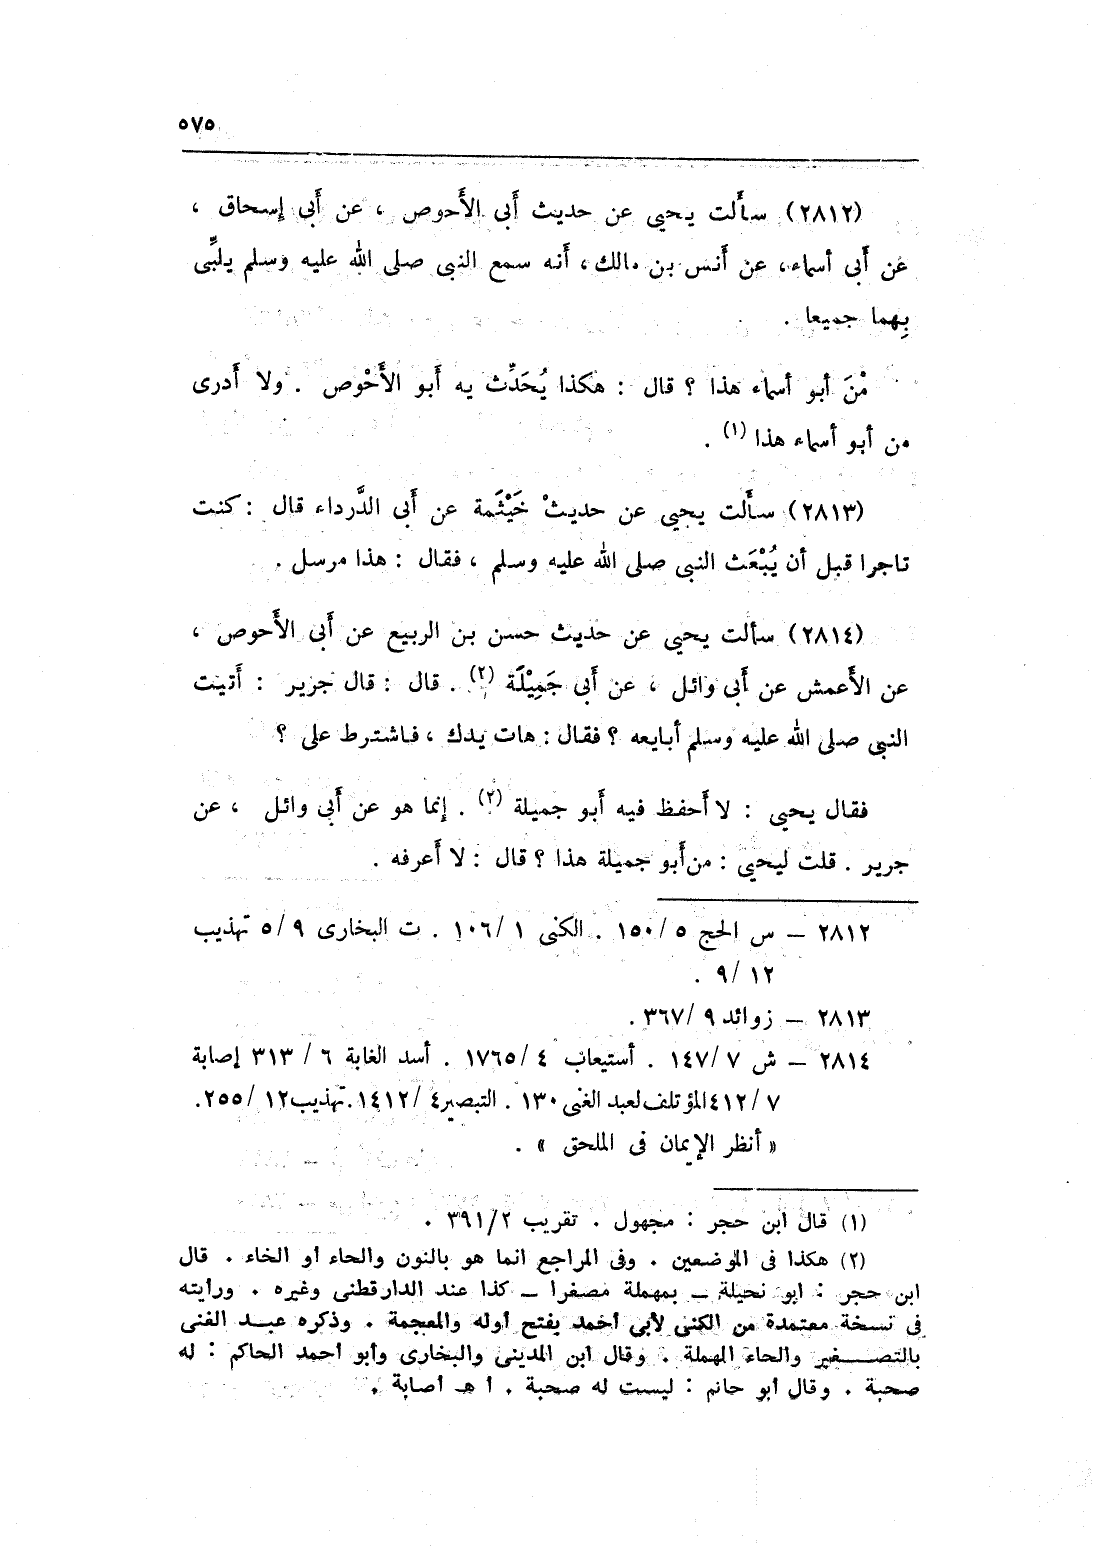 ٥٧٥
(٢٨١٢) سأَلت يحيى عن حديث أَبى الأَحوص ، عن أَبى إسحاق ،
عن أَبى أسماء، عن أَنس بن مالك، أَنه سمع النبى صلى الله عليه وسلم يلبِّى
بِهما جميعا .
مْنَ أبو أسماء هذا ؟ قال : هكذا يُحَدِّث به أَبو الأَحْوص . ولا أَدرى
من أبو أسماء هذا (١) .
(٢٨١٣) سأَلت يحيى عن حديثْ خَيْثَمة عن أَبى الدَّرداء قال : كنت
تاجرا قبل أن يُبْعَث النبى صلى الله عليه وسلم ، فقال : هذا مرسل .
(٢٨١٤) سألت يحيى عن حديث حسن بن الربيع عن أَبى الأَحوص ،
عن الأَعمش عن أَبى وائل ، عن أَبى جَمِيْلَة (٢) . قال : قال جرير : أَتيت
النبى صلى الله عليه وسلم أبايعه ؟ فقال : هات يدك ، فاشترط على ؟
فقال يحيى : لا أَحفظ فيه أَبو جميلة (٢) . إنما هو عن أَبى وائل ، عن
جرير . قلت ليحيى : من أَبو جميلة هذا ؟ قال : لا أَعرفه .
٢٨١٢ – س الحج ٥ /١٥٠ . الكنى ١ /١٠٦ . ت البخارى ٩ /٥ تهذيب
١٢ /٩ .
٢٨١٣ – زوائد ٩ /٣٦٧ .
٢٨١٤ – ش ٧ /١٤٧ . أستيعاب ٤ /١٧٦٥ . أسد الغابة ٦ / ٣١٣ إصابة
٧ /٤١٢ المؤتلف لعبد الغنى ١٣٠ . التبصير ٤ /١٤١٢ . تهذيب ١٢ /٢٥٥.
« أنظر الإيمان فى الملحق » .
(١) قال ابن حجر : مجهول . تقريب ٣٩١/٢ .
(٢) هكذا فى الموضعين . وفى المراجع انما هو بالنون والحاء أو الخاء . قال
ابن حجر : أبو نحيلة – بمهملة مصغرا – كذا عند الدارقطنى وغيره . ورأيته
فى نسخة معتمدة من الكنى لأبى أحمد بفتح أوله والمعجمة . وذكره عبد الغنى
بالتصغير والحاء المهملة . وقال ابن المدينى والبخارى وأبو احمد الحاكم : له
صحبة . وقال أبو حاتم : ليست له صحبة . أ هـ أصابة .